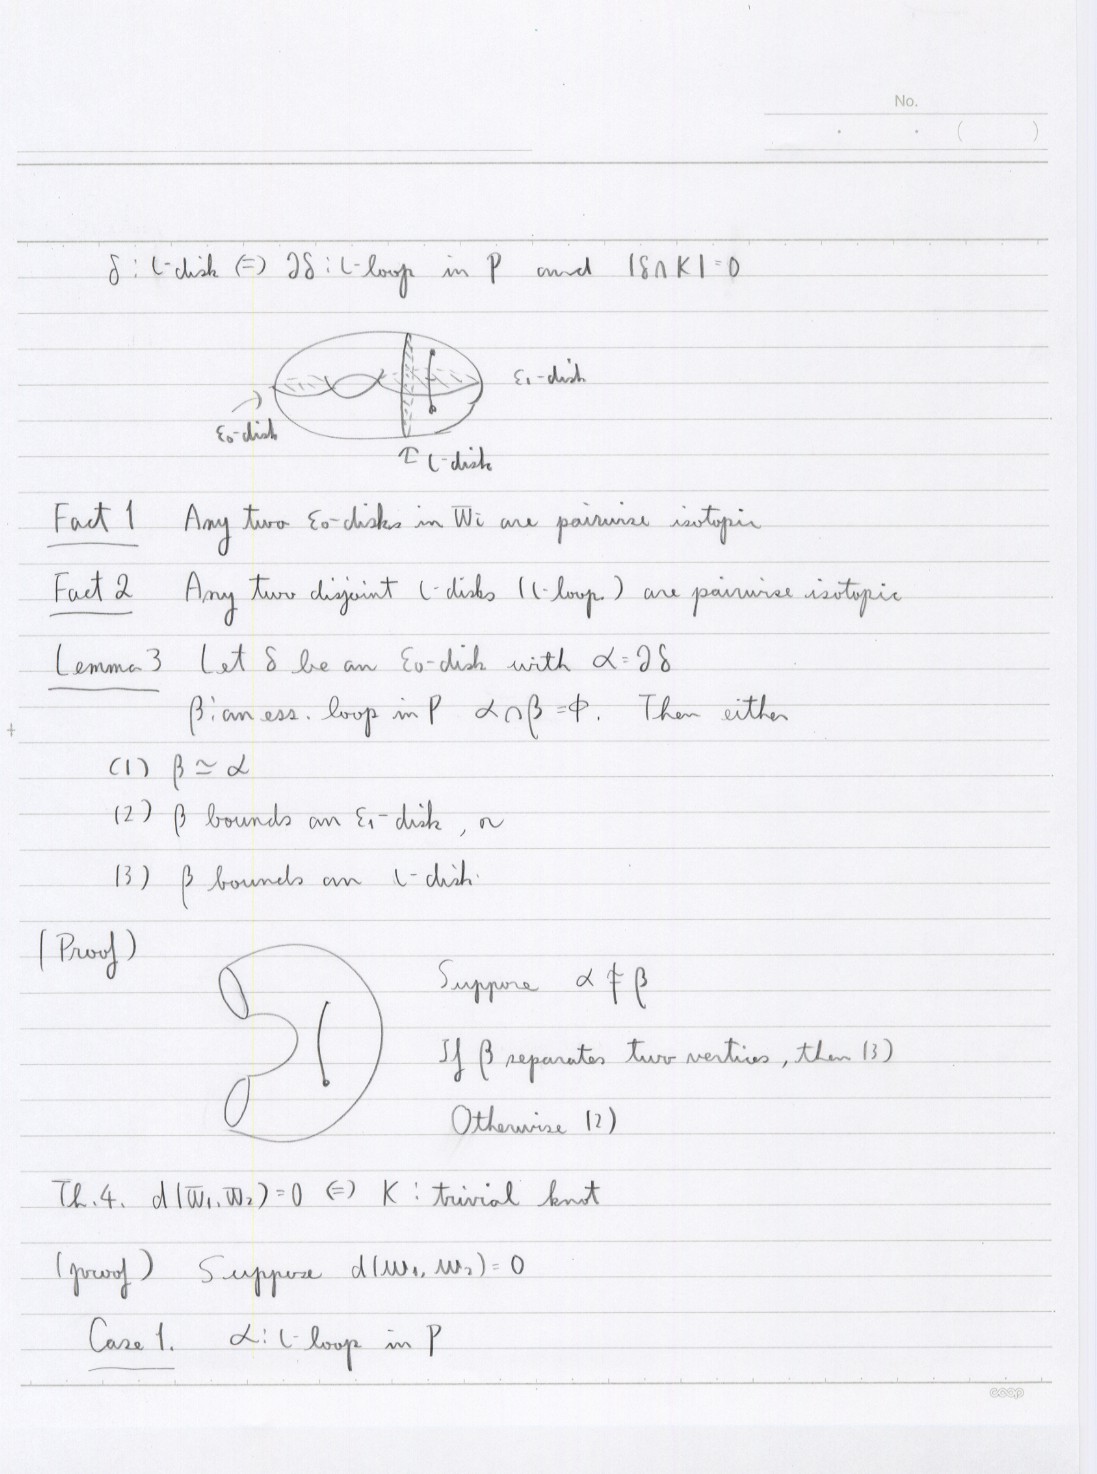 No.
. . ( )
δ : ι-disk ⇔ ∂δ : ι-loop in P and |δ∩K|=0
ε₁-disk
ε₀-disk
↑ ι-disk
Fact 1 Any two ε₀-disks in Wi are pairwise isotopic
Fact 2 Any two disjoint ι-disks (ι-loop) are pairwise isotopic
Lemma 3 Let δ be an ε₀-disk with α=∂δ
β: an ess. loop in P α∩β=φ. Then either
(1) β ≃ α
(2) β bounds an ε₁-disk, or
(3) β bounds an ι-disk.
(Proof)
Suppose α ≄ β
If β separates two vertices, then (3)
Otherwise (2)
Th.4. d(W₁, W₂)=0 ⇔ K : trivial knot
(proof) Suppose d(W₁, W₂)=0
Case 1. α: ι-loop in P
coop